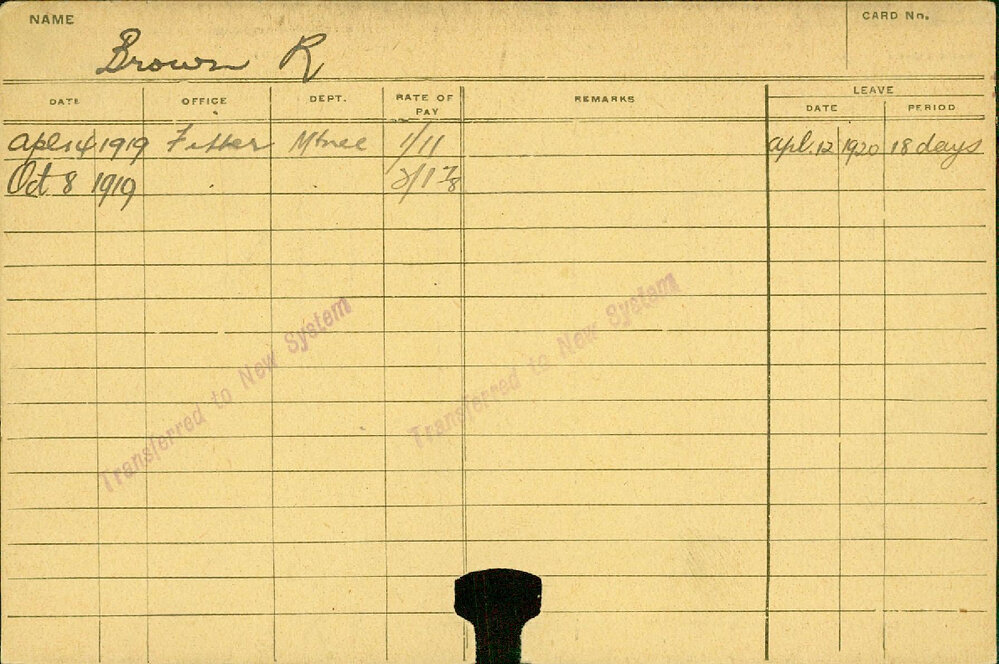 NAME
CARD No.
Brown R
DATE OFFICE DEPT. RATE OF PAY REMARKS LEAVE
DATE PERIOD
Apl 14 1919 Fitter Mtnce 1/11 Apl. 12 1920 18 days
Oct 8 1919 2/1 7/8
Transferred to New System
Transferred to New System